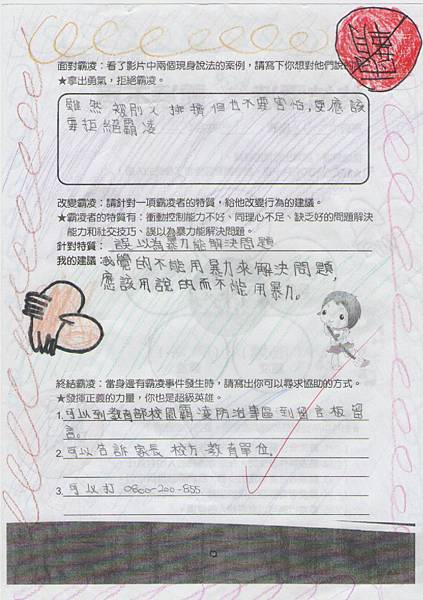 面對霸凌：看了影片中兩個現身說法的案例，請寫下你想對他們說
★拿出勇氣，拒絕霸凌。
雖然被別人排擠但也不要害怕,更應該
要拒絕霸凌
改變霸凌：請針對一項霸凌者的特質，給他改變行為的建議。
★霸凌者的特質有：衝動控制能力不好、同理心不足、缺乏好的問題解決
能力和社交技巧、誤以為暴力能解決問題。
針對特質：誤以為暴力能解決問題
我的建議：我覺的不能用暴力來解決問題,
應該用說的而不能用暴力。
終結霸凌：當身邊有霸凌事件發生時，請寫出你可以尋求協助的方式。
★發揮正義的力量，你也是超級英雄。
1.可以到教育部校園霸凌防治專區到留言板留
言。
2.可以告訴家長 校方 教育單位.
3.可以打 0800-200-885